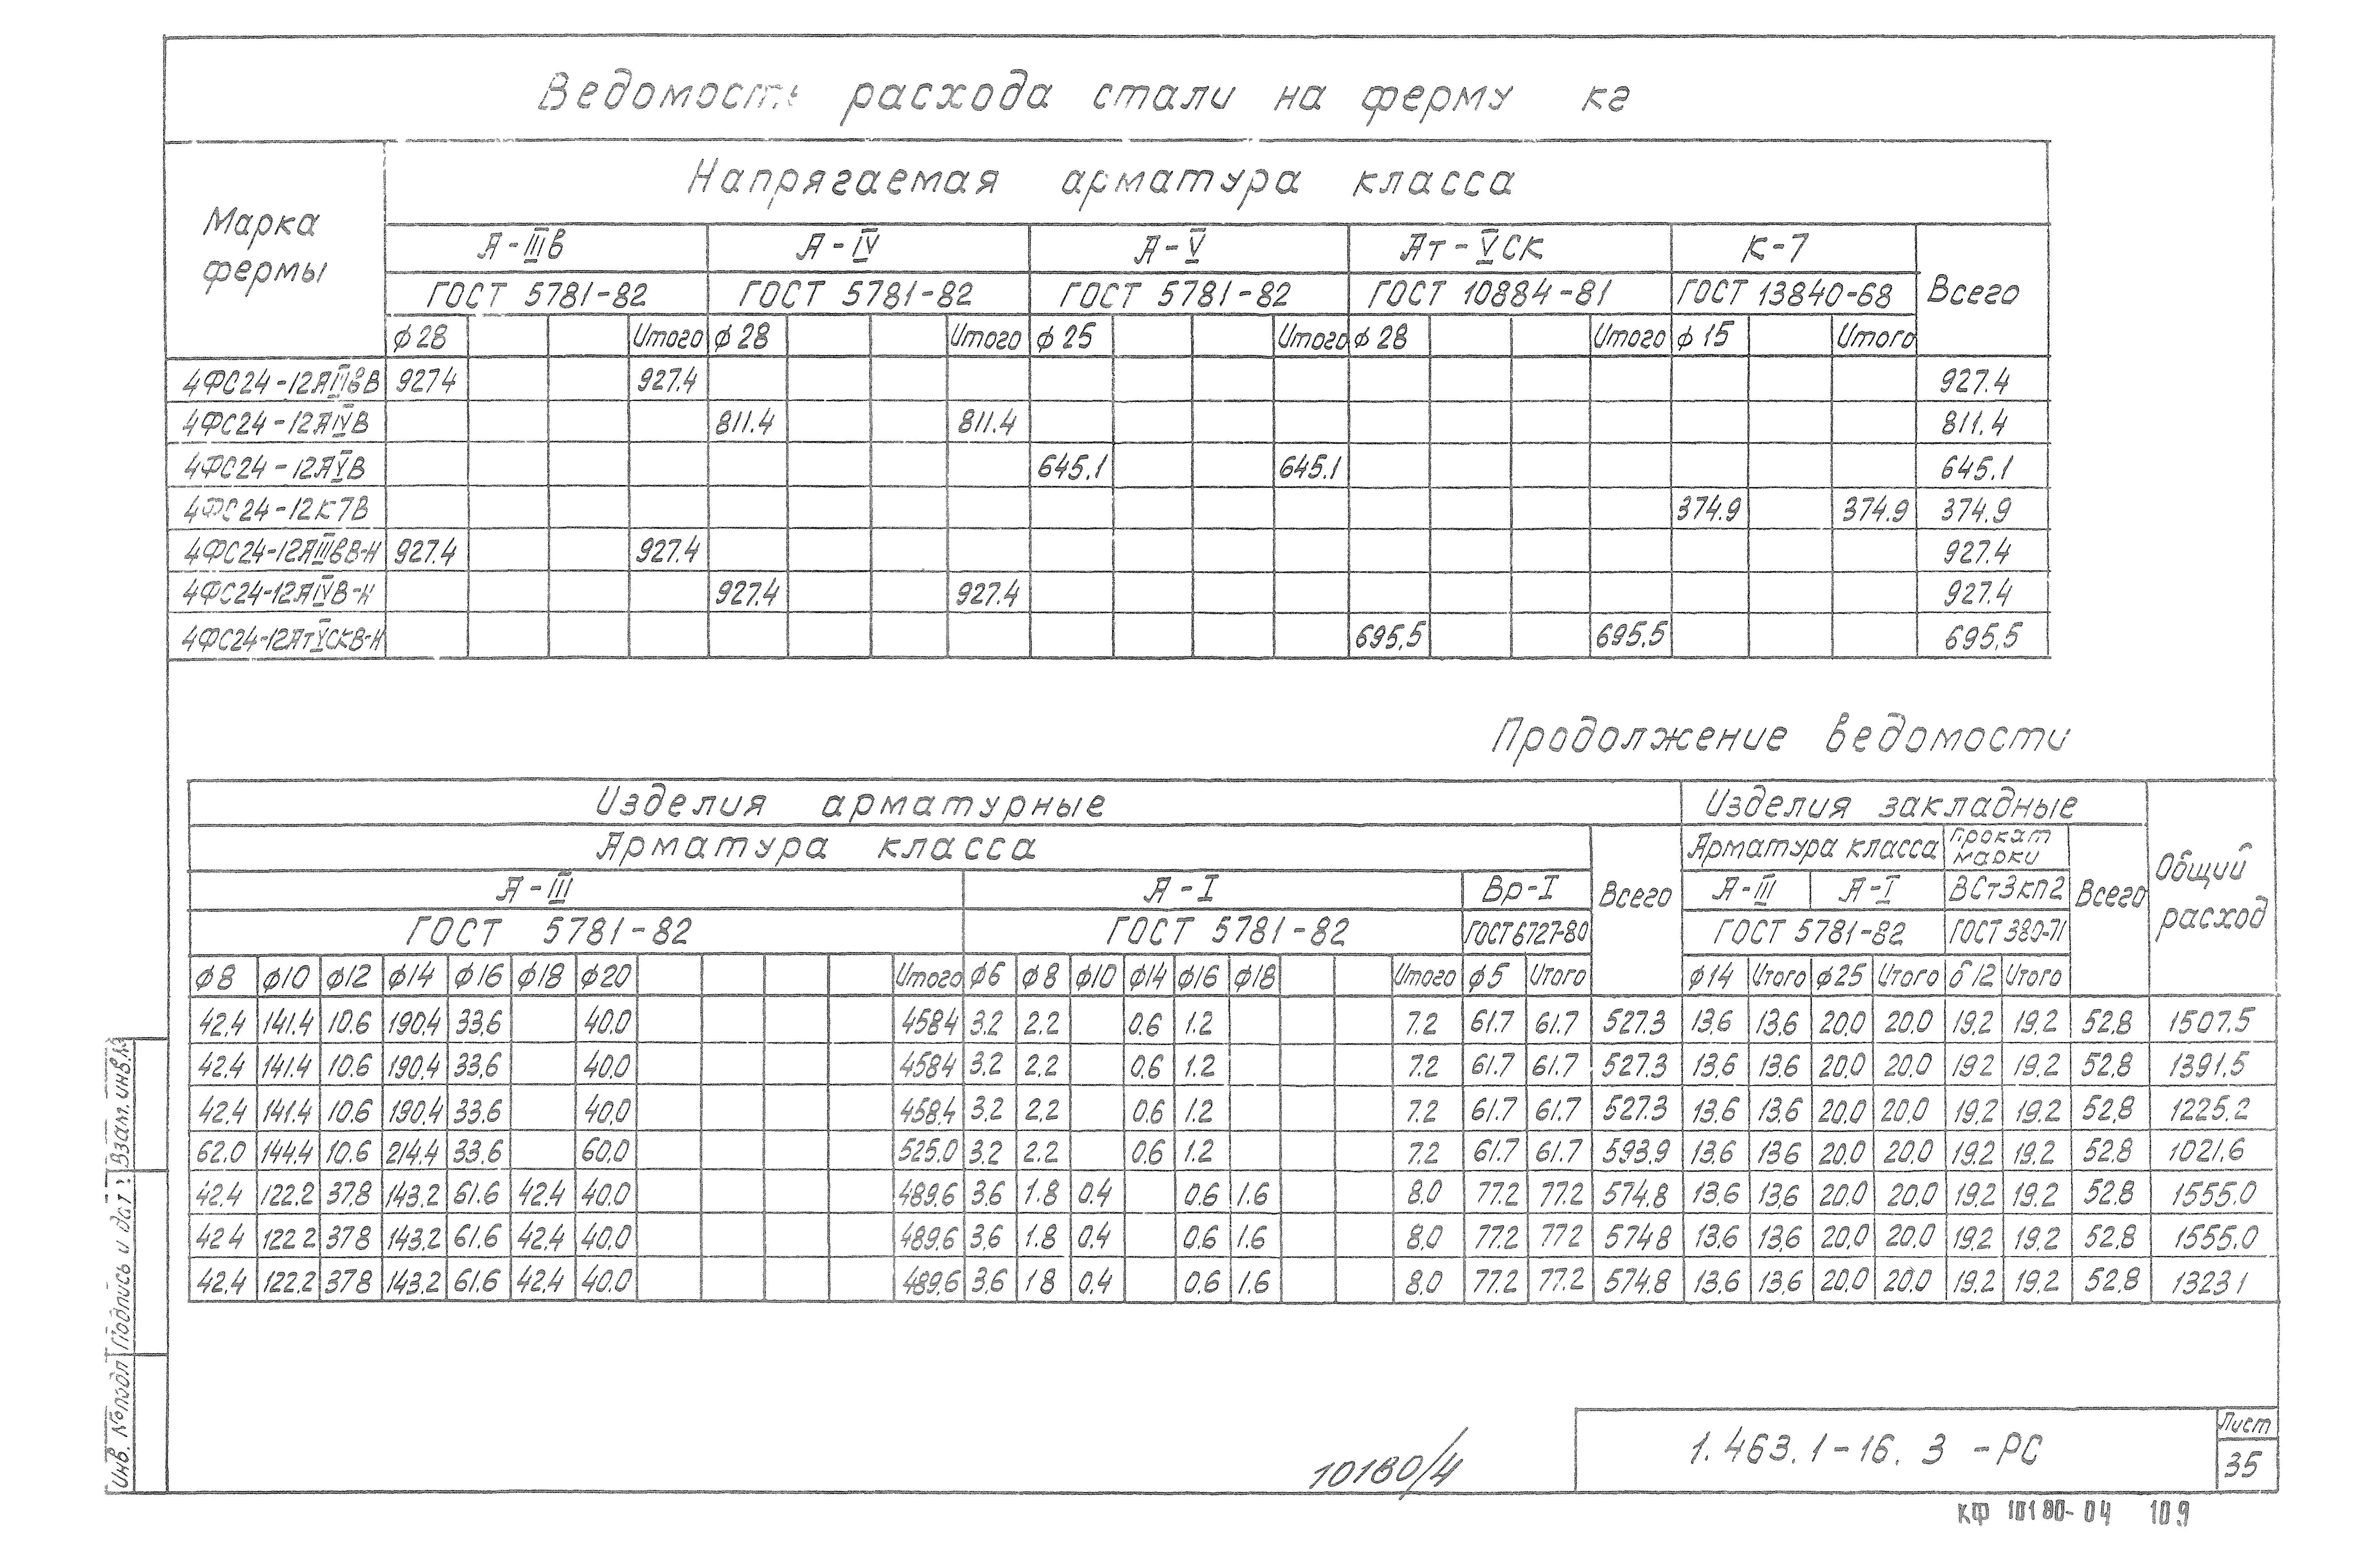 Ведомость расхода стали на ферму кг
Марка фермы
Напрягаемая арматура класса
А-IIIв А-IV А-V Ат-VСК К-7 Всего
ГОСТ 5781-82 ГОСТ 5781-82 ГОСТ 5781-82 ГОСТ 10884-81 ГОСТ 13840-68
ф28 Итого ф28 Итого ф25 Итого ф28 Итого ф15 Итого
4ФС24-12АIIIвВ 927.4 927.4 927.4
4ФС24-12АIVВ 811.4 811.4 811.4
4ФС24-12АVВ 645.1 645.1 645.1
4ФС24-12К7В 374.9 374.9 374.9
4ФС24-12АIIIвВ-Н 927.4 927.4 927.4
4ФС24-12АIVВ-Н 927.4 927.4 927.4
4ФС24-12АтVСКВ-Н 695,5 695,5 695,5
Продолжение ведомости
Изделия арматурные Изделия закладные Общий расход
Арматура класса Всего Арматура класса Прокат марки Всего
А-III А-I Вр-I А-III А-I ВСт3кп2
ГОСТ 5781-82 ГОСТ 5781-82 ГОСТ 6727-80 ГОСТ 5781-82 ГОСТ 380-71
ф8 ф10 ф12 ф14 ф16 ф18 ф20 Итого ф6 ф8 ф10 ф14 ф16 ф18 Итого ф5 Итого ф14 Итого ф25 Итого δ12 Итого
42.4 141.4 10.6 190.4 33.6 40.0 458.4 3.2 2.2 0.6 1.2 7.2 61.7 61.7 527.3 13.6 13.6 20.0 20.0 19.2 19.2 52.8 1507.5
42.4 141.4 10.6 190.4 33.6 40.0 458.4 3.2 2.2 0.6 1.2 7.2 61.7 61.7 527.3 13.6 13.6 20.0 20.0 19.2 19.2 52.8 1391.5
42.4 141.4 10.6 190.4 33.6 40.0 458.4 3.2 2.2 0.6 1.2 7.2 61.7 61.7 527.3 13.6 13.6 20.0 20.0 19.2 19.2 52.8 1225.2
62.0 144.4 10.6 214.4 33.6 60.0 525.0 3.2 2.2 0.6 1.2 7.2 61.7 61.7 593.9 13.6 13.6 20.0 20.0 19.2 19.2 52.8 1021.6
42.4 122.2 37.8 143.2 61.6 42.4 40.0 489.6 3.6 1.8 0.4 0.6 1.6 8.0 77.2 77.2 574.8 13.6 13.6 20.0 20.0 19.2 19.2 52.8 1555.0
42.4 122.2 37.8 143.2 61.6 42.4 40.0 489.6 3.6 1.8 0.4 0.6 1.6 8.0 77.2 77.2 574.8 13.6 13.6 20.0 20.0 19.2 19.2 52.8 1555.0
42.4 122.2 37.8 143.2 61.6 42.4 40.0 489.6 3.6 1.8 0.4 0.6 1.6 8.0 77.2 77.2 574.8 13.6 13.6 20.0 20.0 19.2 19.2 52.8 1323.1
Инв. № подл Подпись и дат Взам. инв.№
10180/4
1.463.1-16. 3 -РС
Лист
35
КФ 10180-04 109